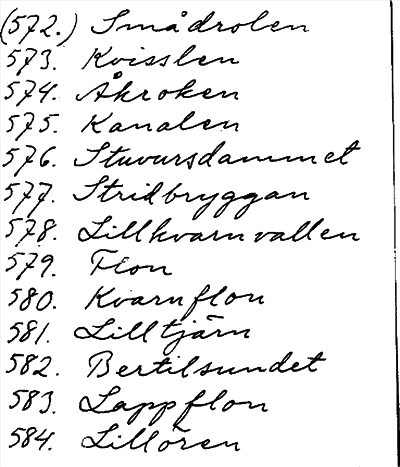 (572.) Smådrolen
573. Kvisslen
574. Åkroken
575. Kanalen
576. Stuvursdammet
577. Stridbryggan
578. Lillkvarnvallen
579. Flon
580. Kvarnflon
581. Lilltjärn
582. Bertilsundet
583. Lappflon
584. Lillören